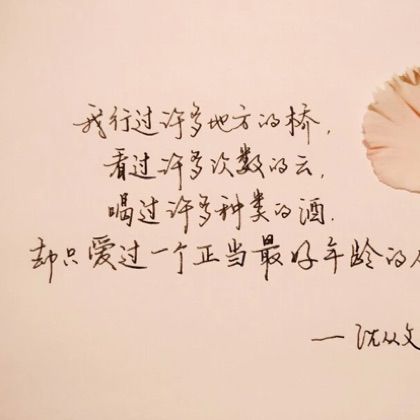 我行过许多地方的桥，
看过许多次数的云，
喝过许多种类的酒．
却只爱过一个正当最好年龄的
——沈从文